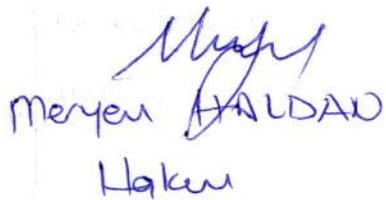 Meryem HALDAN
Hakem